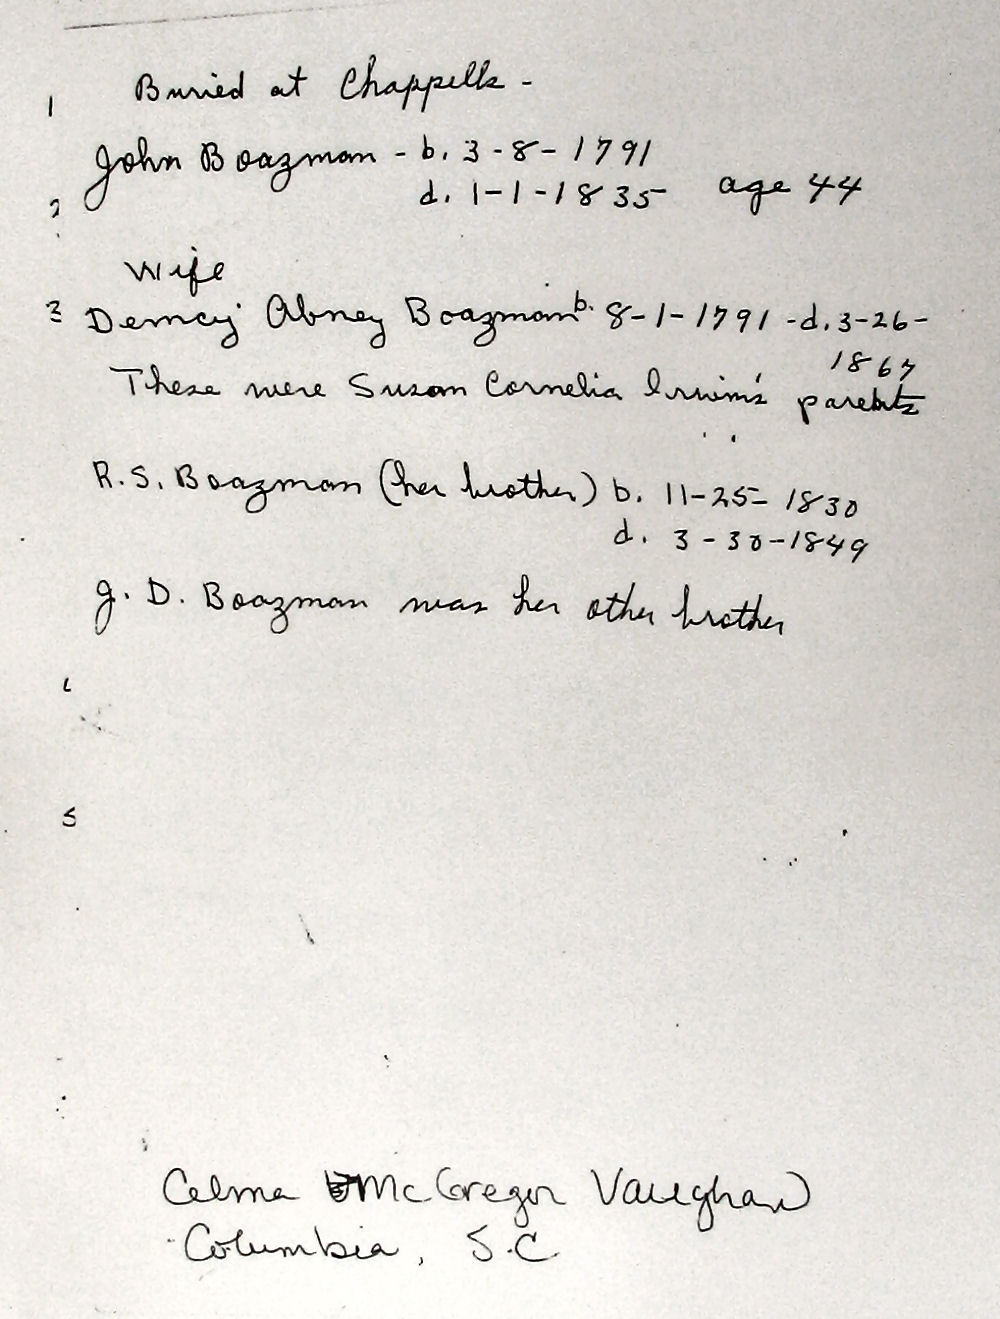 1 Buried at Chappells -
John Boazman - b. 3-8-1791
2 d. 1-1-1835 age 44
Wife
3 Demcy Abney Boazman b. 8-1-1791 -d. 3-26-
1867
These were Susan Cornelia Irwin's parents
R.S. Boazman (her brother) b. 11-25-1830
d. 3-30-1849
J. D. Boazman was her other brother
5
Celma McGregor Vaughan
Columbia, S.C.